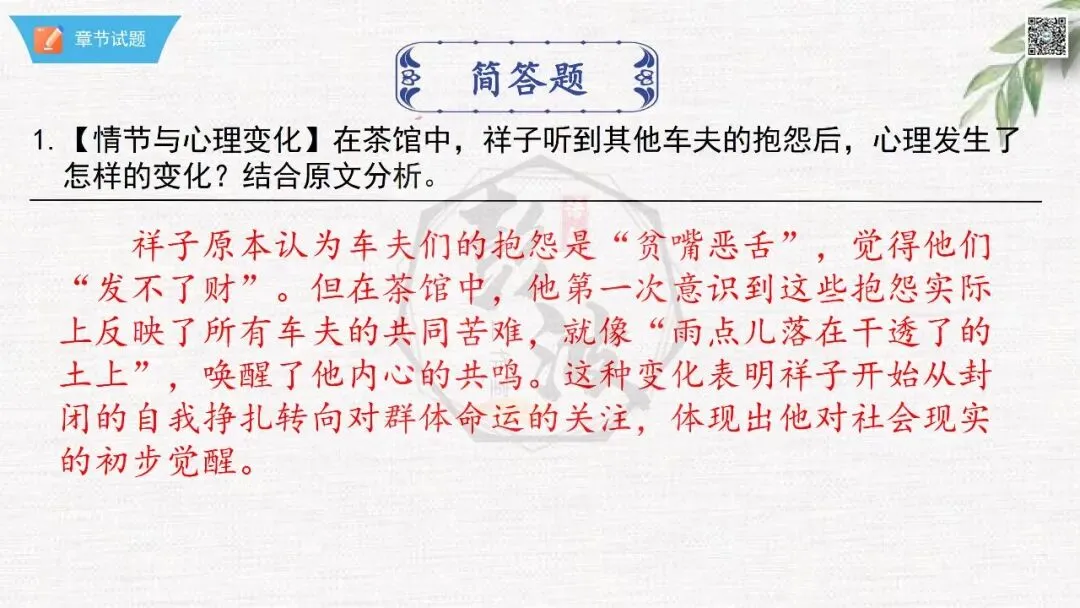 章节试题
简答题
1.【情节与心理变化】在茶馆中，祥子听到其他车夫的抱怨后，心理发生了
怎样的变化？结合原文分析。
祥子原本认为车夫们的抱怨是“贫嘴恶舌”，觉得他们
“发不了财”。但在茶馆中，他第一次意识到这些抱怨实际
上反映了所有车夫的共同苦难，就像“雨点儿落在干透了的
土上”，唤醒了他内心的共鸣。这种变化表明祥子开始从封
闭的自我挣扎转向对群体命运的关注，体现出他对社会现实
的初步觉醒。